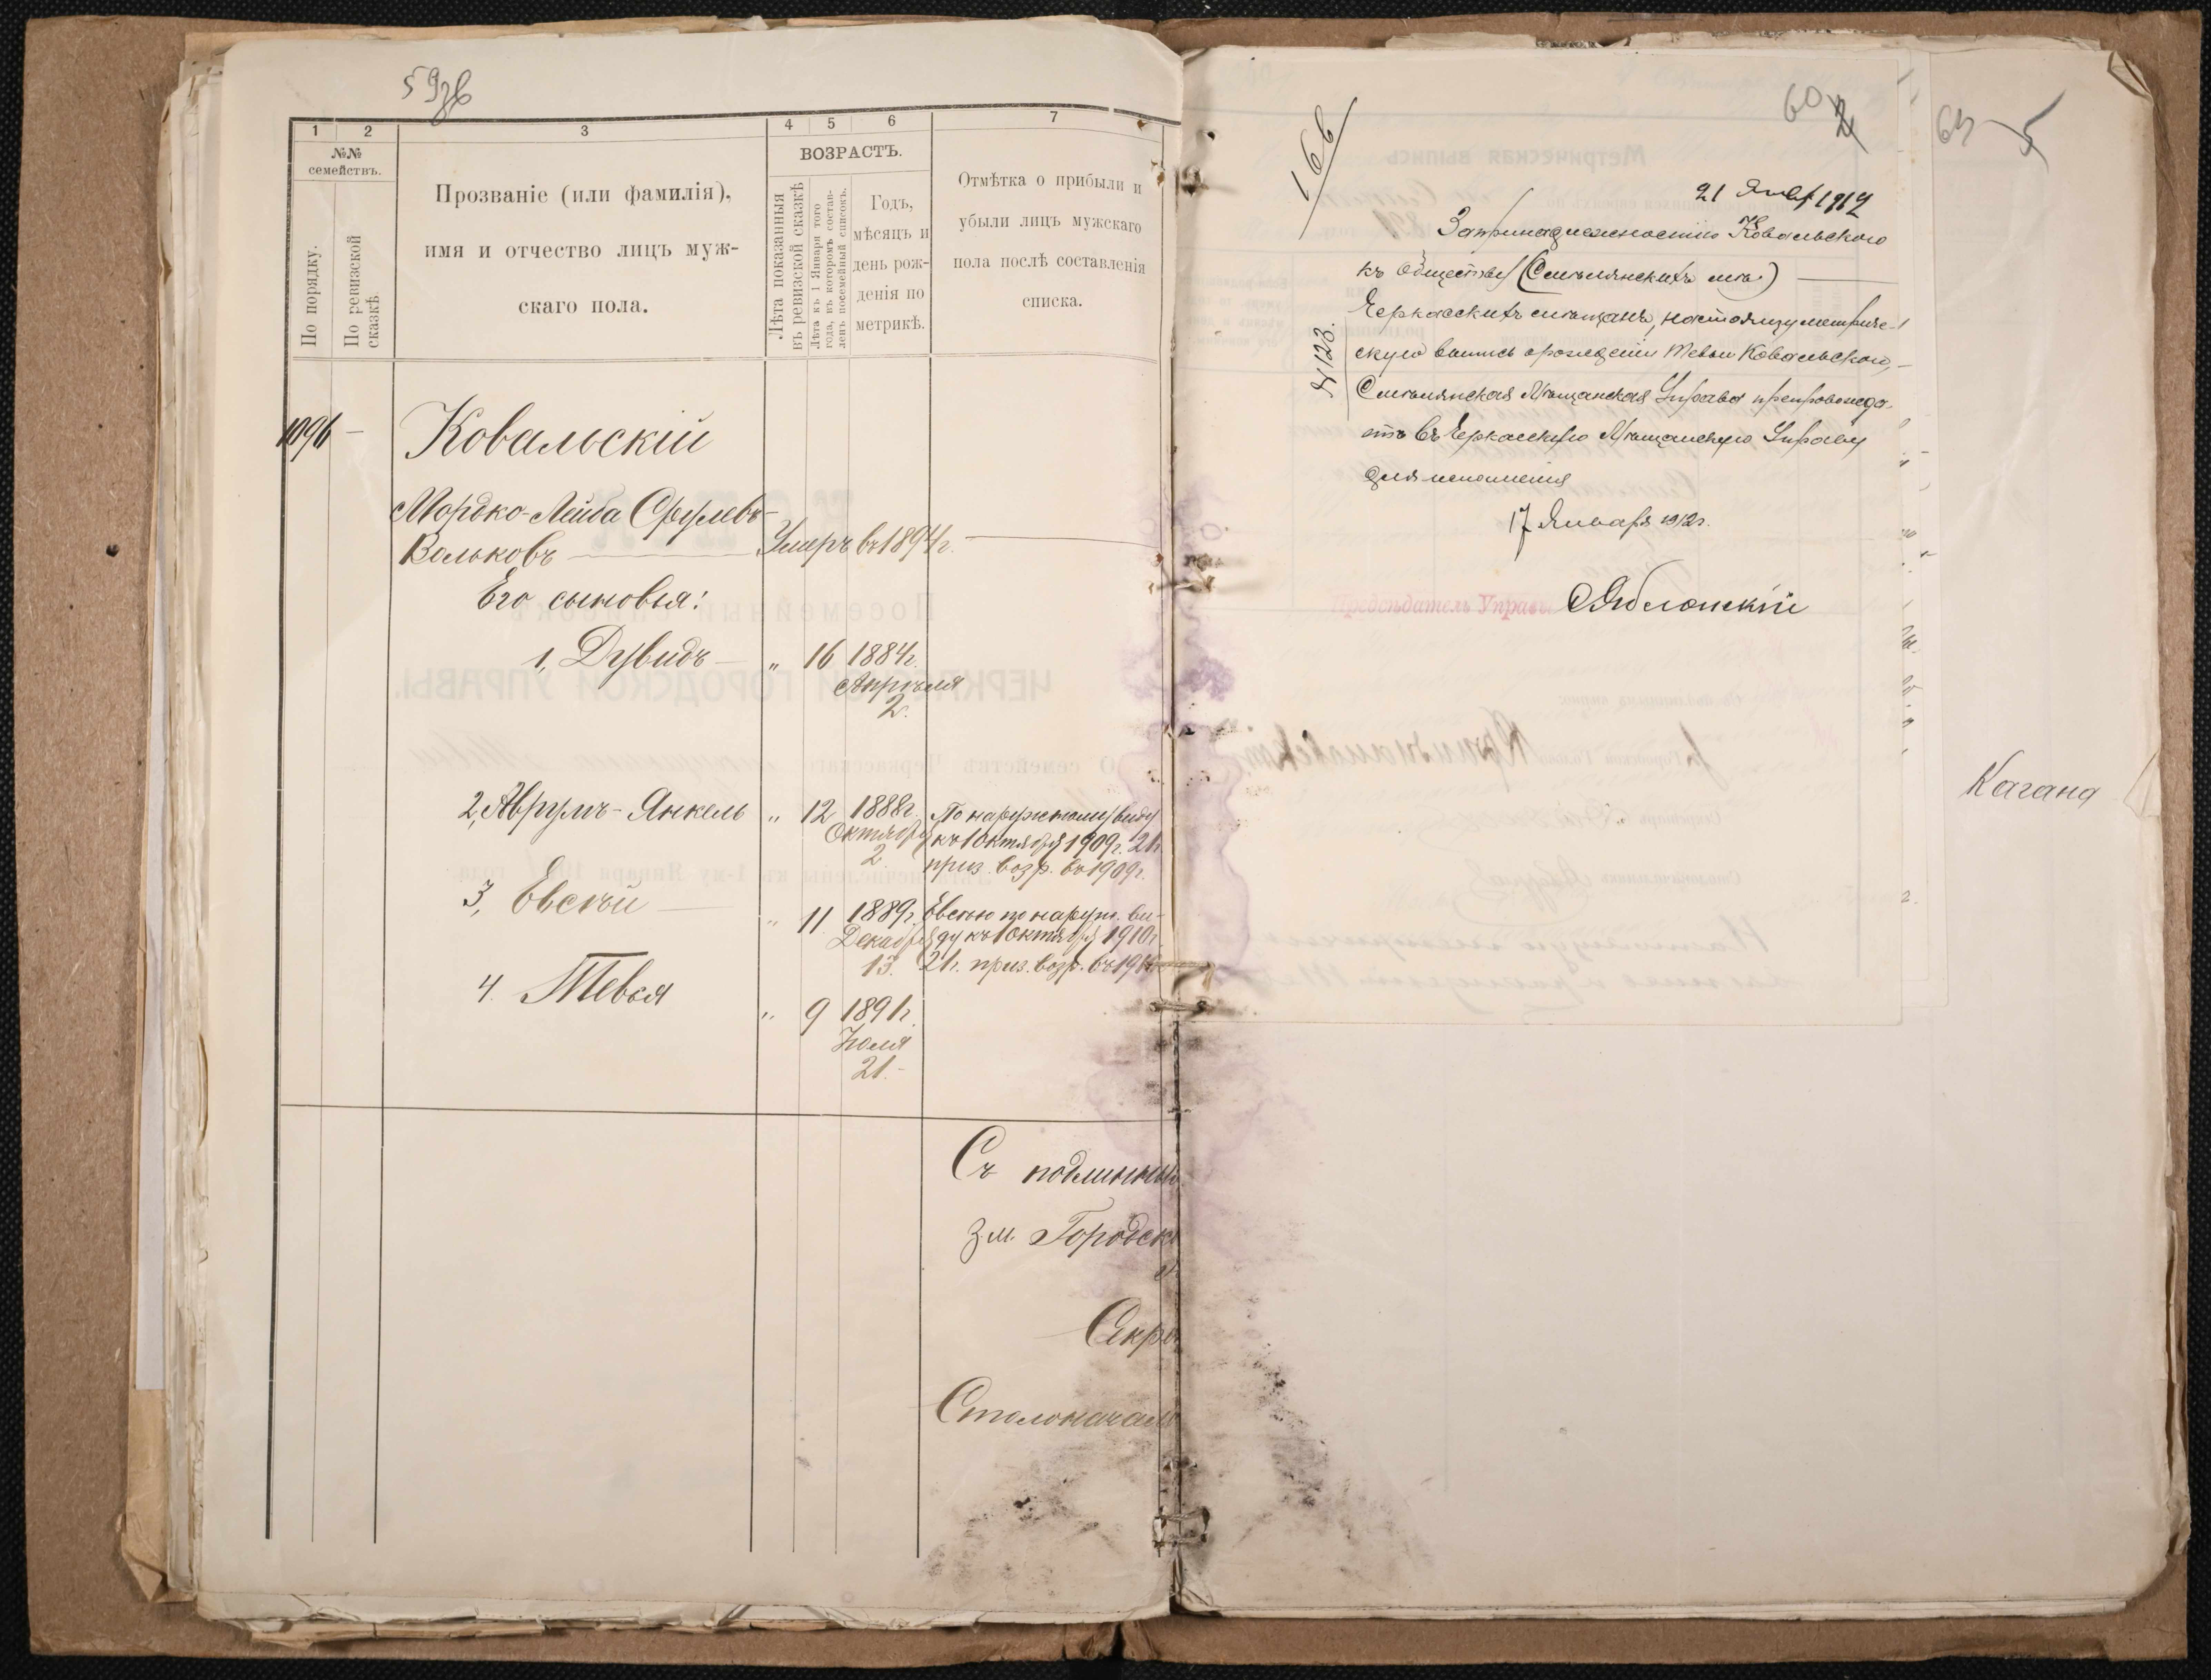 59 зв
1 2 3 4 5 6 7
№№ семействъ.
По порядку.
По ревизской сказкѣ.
Прозваніе (или фамилія),
имя и отчество лицъ муж-
скаго пола.
ВОЗРАСТЪ.
Лѣта показанныя
въ ревизской сказкѣ
Лѣта къ 1 Января того
года, въ которомъ состав-
ленъ посемейный списокъ.
Годъ,
мѣсяцъ и
день рож-
денія по
метрикѣ.
Отмѣтка о прибыли и
убыли лицъ мужскаго
пола послѣ составленія
списка.
1096 — Ковальскій
Мордко-Лейба Срулевъ-
Вольковъ — Умеръ въ 1894 г. —
Его сыновья:
1, Дувидъ — „ 16 1884 г.
Апрѣля
2.
2, Аврумъ-Янкель „ 12 1888 г.
Октября
2.
По наружному виду
къ 1 октября 1909 г. 21 г.
приз. возр. въ 1909 г.
3, Евсѣй — „ 11 1889 г.
Декабря
13.
Евсѣю по наруж. ви-
ду къ 1 октября 1910 г.
21 г. приз. возр. въ 1910
4. Тевья „ 9 1891 г.
Іюля
21.
Съ подлинны
з.м. Городск
Секре
Столоначаль
166
60
2
21 Янв 1912
За принадлежностію Ковальскаго
къ обществу (Смѣлянскихъ мѣщ.)
Черкасскихъ мѣщанъ, настоящую метриче-
скую выпись о рожденіи Тевьи Ковальскаго,
Смѣлянская Мѣщанская Управа препровожда-
етъ въ Черкасскую Мѣщанскую Управу
для исполненія
№ 123.
17 Января 1912 г.
Предсѣдатель Управы Яблонскій
5
Кагана